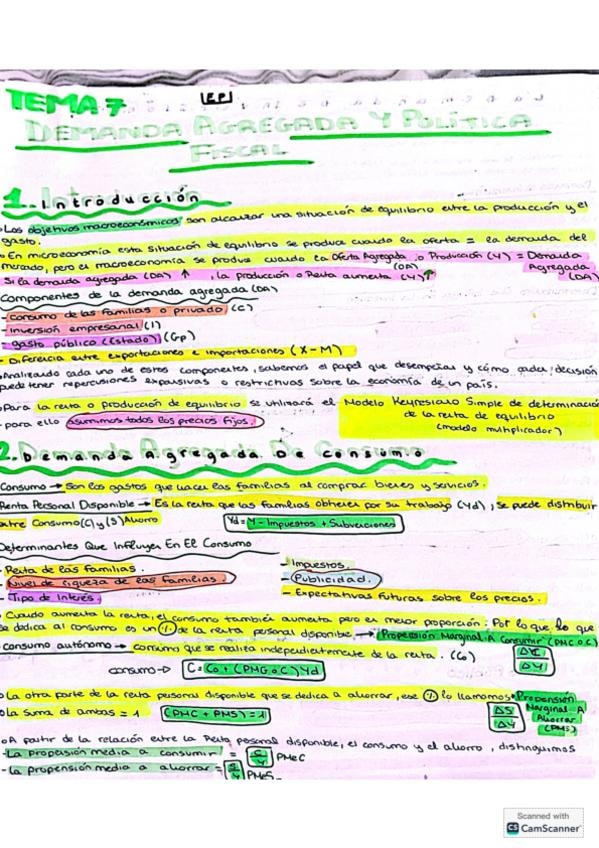 TEMA 7
DEMANDA AGREGADA Y POLÍTICA
FISCAL
1. Introducción
Los objetivos macroeconómicos son alcanzar una situación de equilibrio entre la producción y el
gasto.
En microeconomía esta situación de equilibrio se produce cuando la oferta = la demanda del
mercado, pero el macroeconomía se produce cuando la Oferta Agregada o Producción (Y) = Demanda
(OA) Agregada
Si la demanda agregada (DA) ↑, la producción o Renta aumenta (Y)↑ (DA)
Componentes de la demanda agregada (DA)
- Consumo de las familias o privado (C)
- inversión empresarial (I)
- gasto público (Estado) (Gp)
- Diferencia entre exportaciones e importaciones (X-M)
Analizando cada uno de estos componentes, sabemos el papel que desempeñan y cómo cada decisión
puede tener repercusiones expansivas o restrictivas sobre la economía de un país.
Para la renta o producción de equilibrio se utilizará el Modelo Keynesiano Simple de determinación
de la renta de equilibrio
- para ello asumimos todos los precios fijos.
(modelo multiplicador)
2. Demanda Agregada De Consumo
Consumo → Son los gastos que hacen las familias al comprar bienes y servicios.
Renta Personal Disponible → Es la renta que las familias obtienen por su trabajo (Yd), se puede distribuir
entre Consumo (C) y (S) Ahorro
Yd = Y - Impuestos + Subvenciones
Determinantes Que Influyen En El Consumo
- Renta de las familias.
- Nivel de riqueza de las familias.
- Tipo de Interés.
- Impuestos.
- Publicidad.
- Expectativas futuras sobre los precios.
Cuando aumenta la renta, el consumo también aumenta pero en menor proporción. Por lo que lo que
se dedica al consumo es un % de la renta personal disponible, → Propensión Marginal A Consumir (PMC o C)
Consumo autónomo → consumo que se realiza independientemente de la renta. (Co)
ΔC
ΔY
consumo → C = Co + (PMG o C) Yd
La otra parte de la renta personal disponible que se dedica a ahorrar, ese % lo llamamos Propensión
Marginal A
Ahorrar
(PMS)
La suma de ambas = 1 (PMC + PMS) = 1
ΔS
ΔY
A partir de la relación entre la Renta personal disponible, el consumo y el ahorro, distinguimos
- La propensión media a consumir = C/Y PMeC
- La propensión media a ahorrar = S/Y PMeS
Scanned with
CS CamScanner